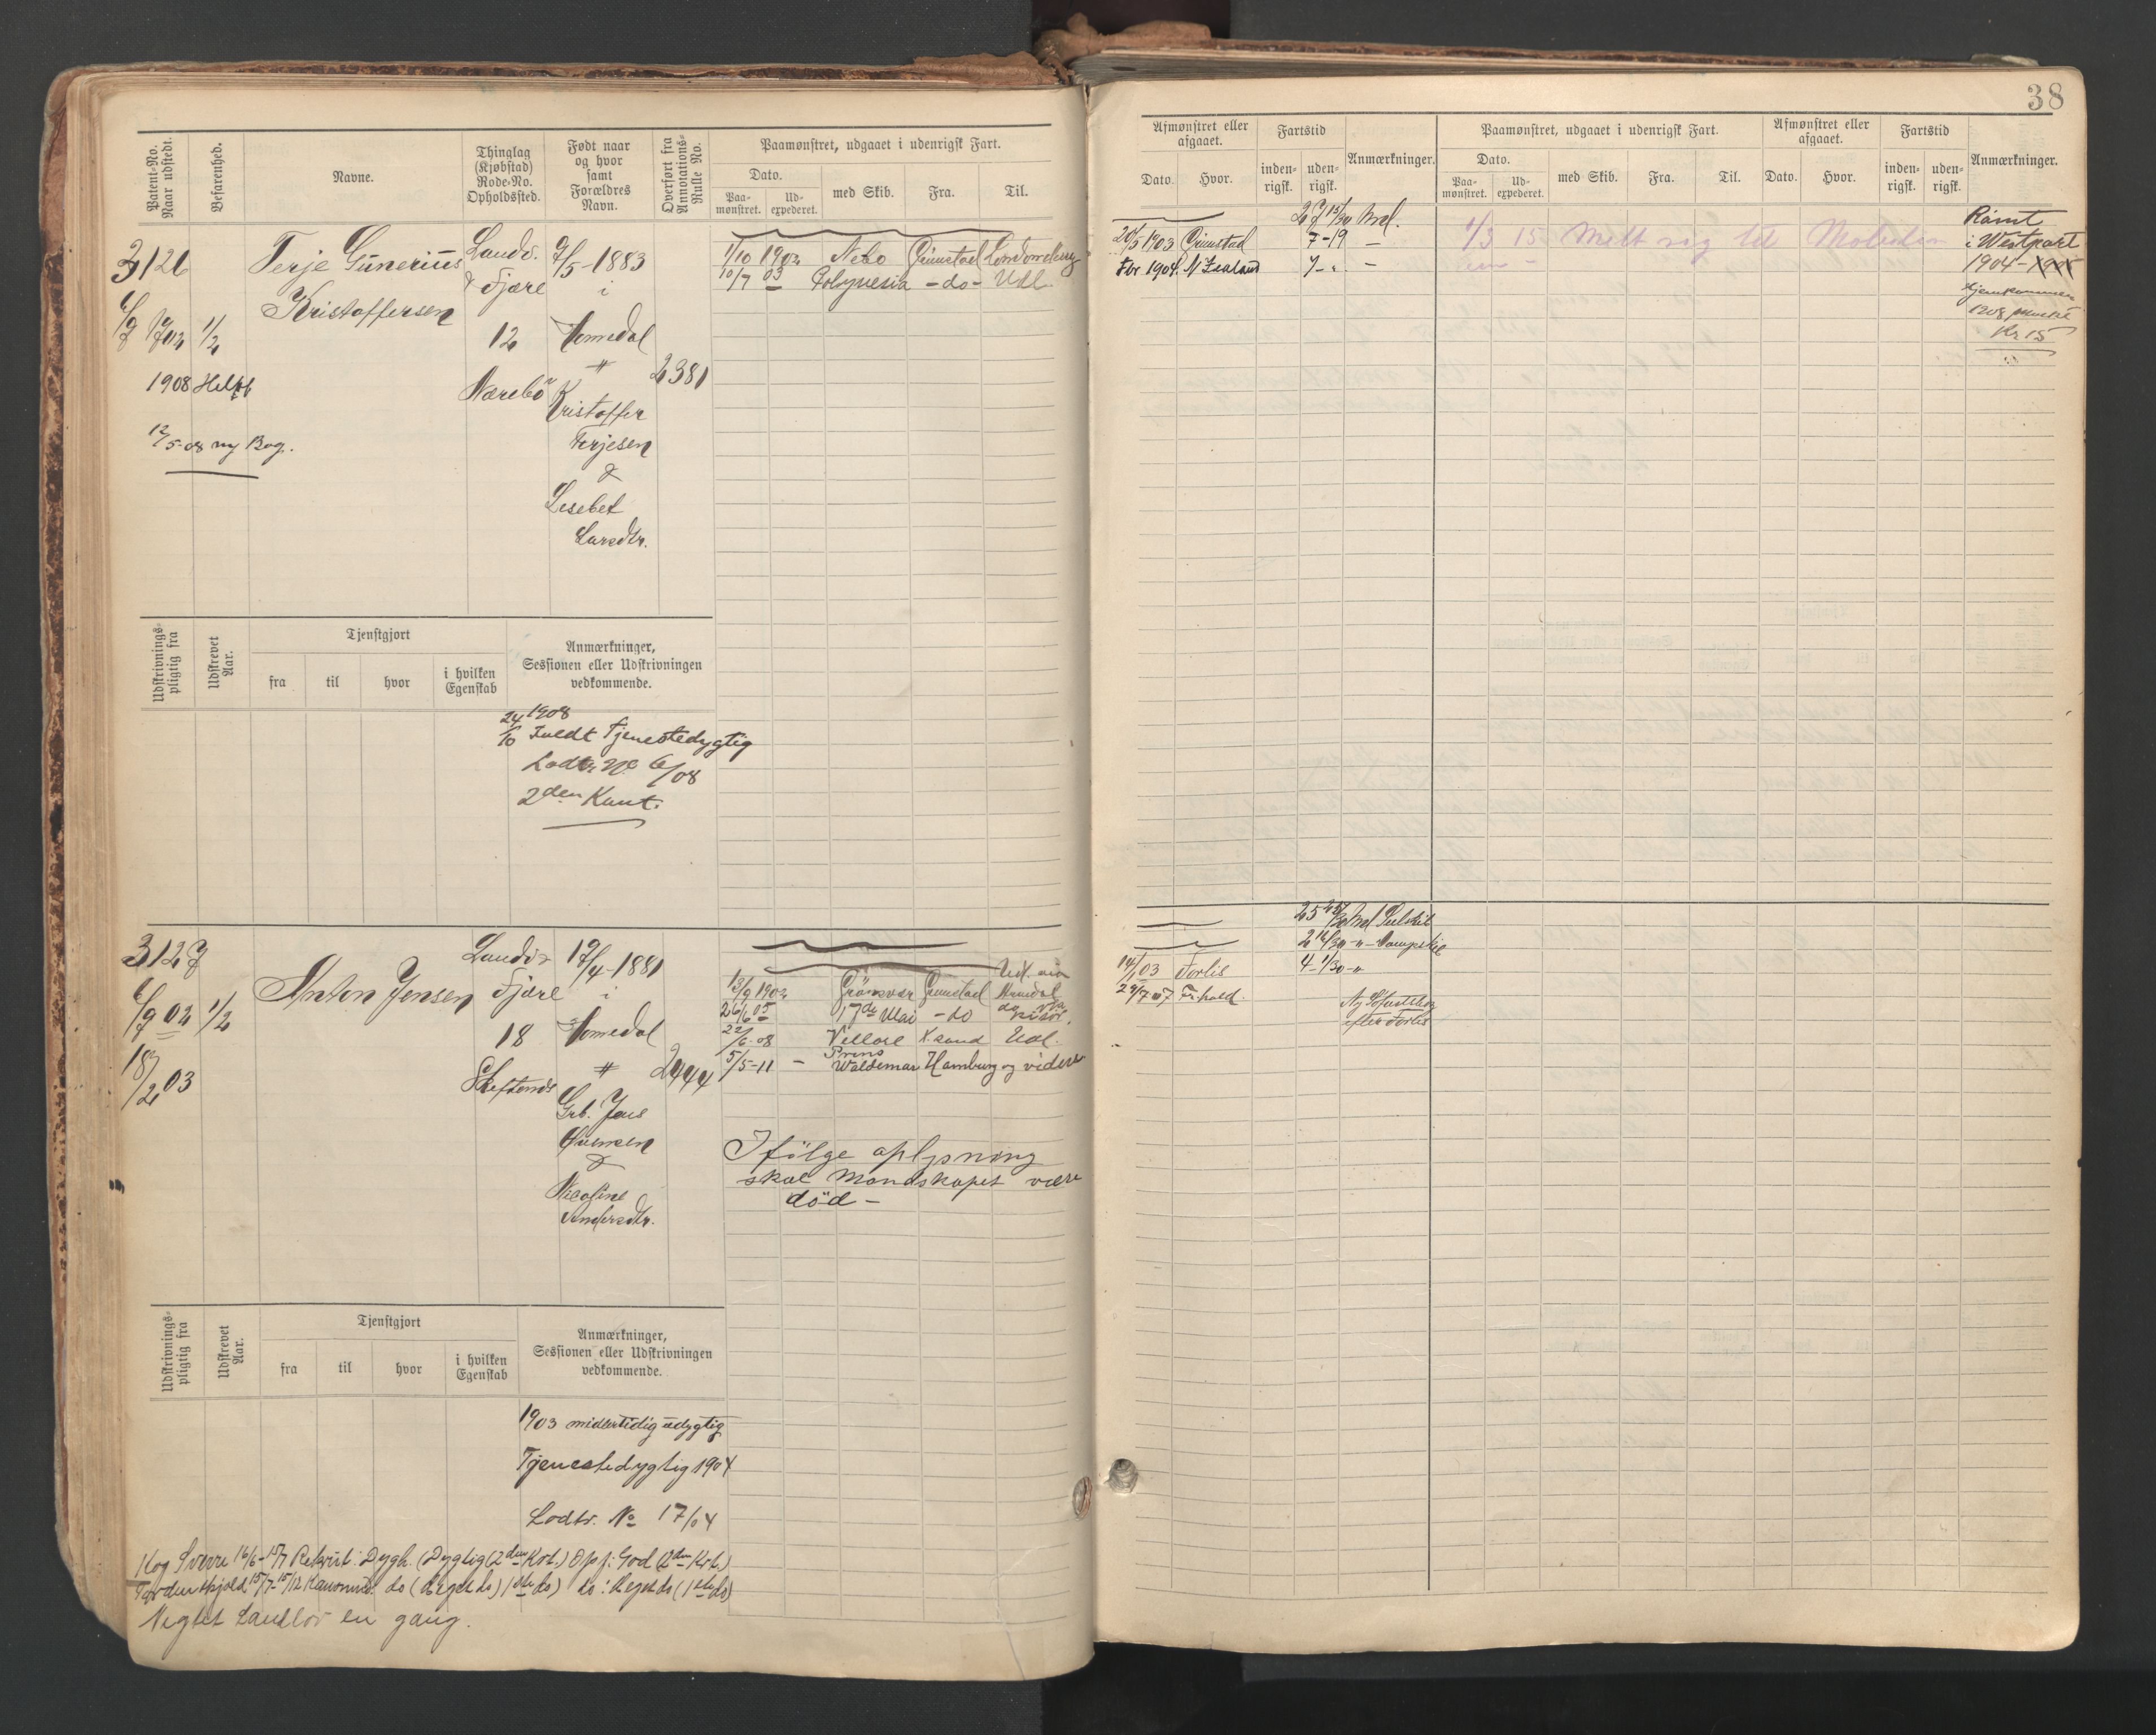 38
Patent-No.
Naar udstedt.
Befarenhed.
Navne.
Thinglag
(Kjøbstad)
Rode-No.
Opholdssted.
Født naar
og hvor
samt
Forældres
Navn.
Overført fra
Annotations-
Rulle No.
Paamønstret, udgaaet i udenrigsk Fart.
Dato.
Paa-
mønstret.
Ud-
expederet.
med Skib.
Fra.
Til.
3126
6/9 1902 1/2
1908 Helbf
12/5-08 ny Bog.
Terje Gunerius
Kristoffersen
Landv.
Fjære
12
Nærebö
7/5-1883
i
Homedal
Kristoffer
Terjesen
&
Lisebet
Larsdtr.
2381
1/10 1902 Nebo Grimstad Londonderry
10/7 03 Polynesia -do- Udl.
Udskrivnings-
pligtig fra
Udskrevet
Aar.
Tjenstgjort
fra
til
hvor
i hvilken
Egenskab
Anmærkninger,
Sessionen eller Udskrivningen
vedkommende.
24/10 1908
Fuldt Tjenestedygtig
Lodtr. No 6/08
2den Kont.
3127
6/9 02 1/2
18/2 03
Anton Jensen
Landv.
Fjære
18
17/4-1881
i
Homedal
Grb. Jens
&
Nicoline
Andersdtr.
2444
13/9 1902 Grimstad
26/6 05 17de Mai -do
22/6-08 Vellore K.sand Udl.
5/5-11 - Prins
Waldemar Hamburg og videre
Ifölge oplysning
skal Mandskapet være
död -
Udskrivnings-
pligtig fra
Udskrevet
Aar.
Tjenstgjort
fra
til
hvor
i hvilken
Egenskab
Anmærkninger,
Sessionen eller Udskrivningen
vedkommende.
1903 midlertidig udygtig
Tjenestedygtig 1904
Lodtr. No 17/04
Kog Sverre 16/6-15/7 Rekrut: Dygh. (Dygtig (2den Krt.) Opf: God (2den Krt.)
Tordenskjold 15/7-15/12
Negtet Landlov en gang.
Afmønstret eller
afgaaet.
Dato.
Hvor.
Fartstid
inden-
rigsk.
uden-
rigsk.
Anmærkninger.
Paamønstret, udgaaet i udenrigsk Fart.
Dato.
Paa-
mønstret.
Ud-
expederet.
med Skib.
Fra.
Til.
Afmønstret eller
afgaaet.
Dato.
Hvor.
Fartstid
inden-
rigsk.
uden-
rigsk.
Anmærkninger.
27 15/30 Md.
20/5 1903 Grimstad 7-19 -
Fbr 1904. N Zealand 7-
1/3 15 Meldt sig til
Römt
i Westport
1904-1905
Hjemkommen
1908
Kr 15
Md Seilskib
14/1 03 Forlis 4-1/30-"
efter Forlis